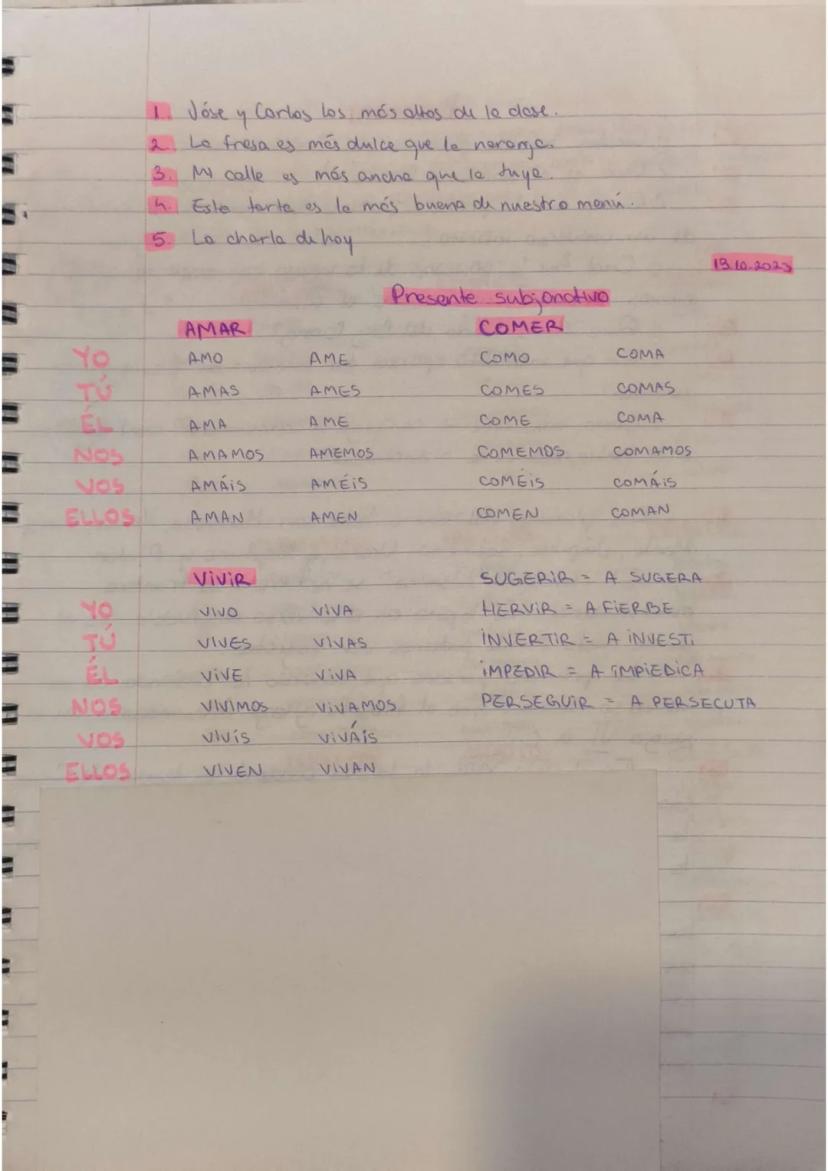 1. Jóse y Carlos los más altos de la clase.
2. La fresa es más dulce que la naranja.
3. Mi calle es más ancha que la tuya.
4. Esta tarta es la más buena de nuestro menú.
5. La charla de hoy
13.10.2023
Presente subjonctivo
AMAR COMER
YO AMO AME COMO COMA
TÚ AMAS AMES COMES COMAS
ÉL AMA AME COME COMA
NOS AMAMOS AMEMOS COMEMOS COMAMOS
VOS AMÁIS AMÉIS COMÉIS COMÁIS
ELLOS AMAN AMEN COMEN COMAN
VIVIR SUGERIR = A SUGERA
YO VIVO VIVA HERVIR = A FIERBE
TÚ VIVES VIVAS INVERTIR = A INVESTI
ÉL VIVE VIVA IMPEDIR = A IMPIEDICA
NOS VIVIMOS VIVAMOS PERSEGUIR = A PERSECUTA
VOS VIVÍS VIVÁIS
ELLOS VIVEN VIVAN